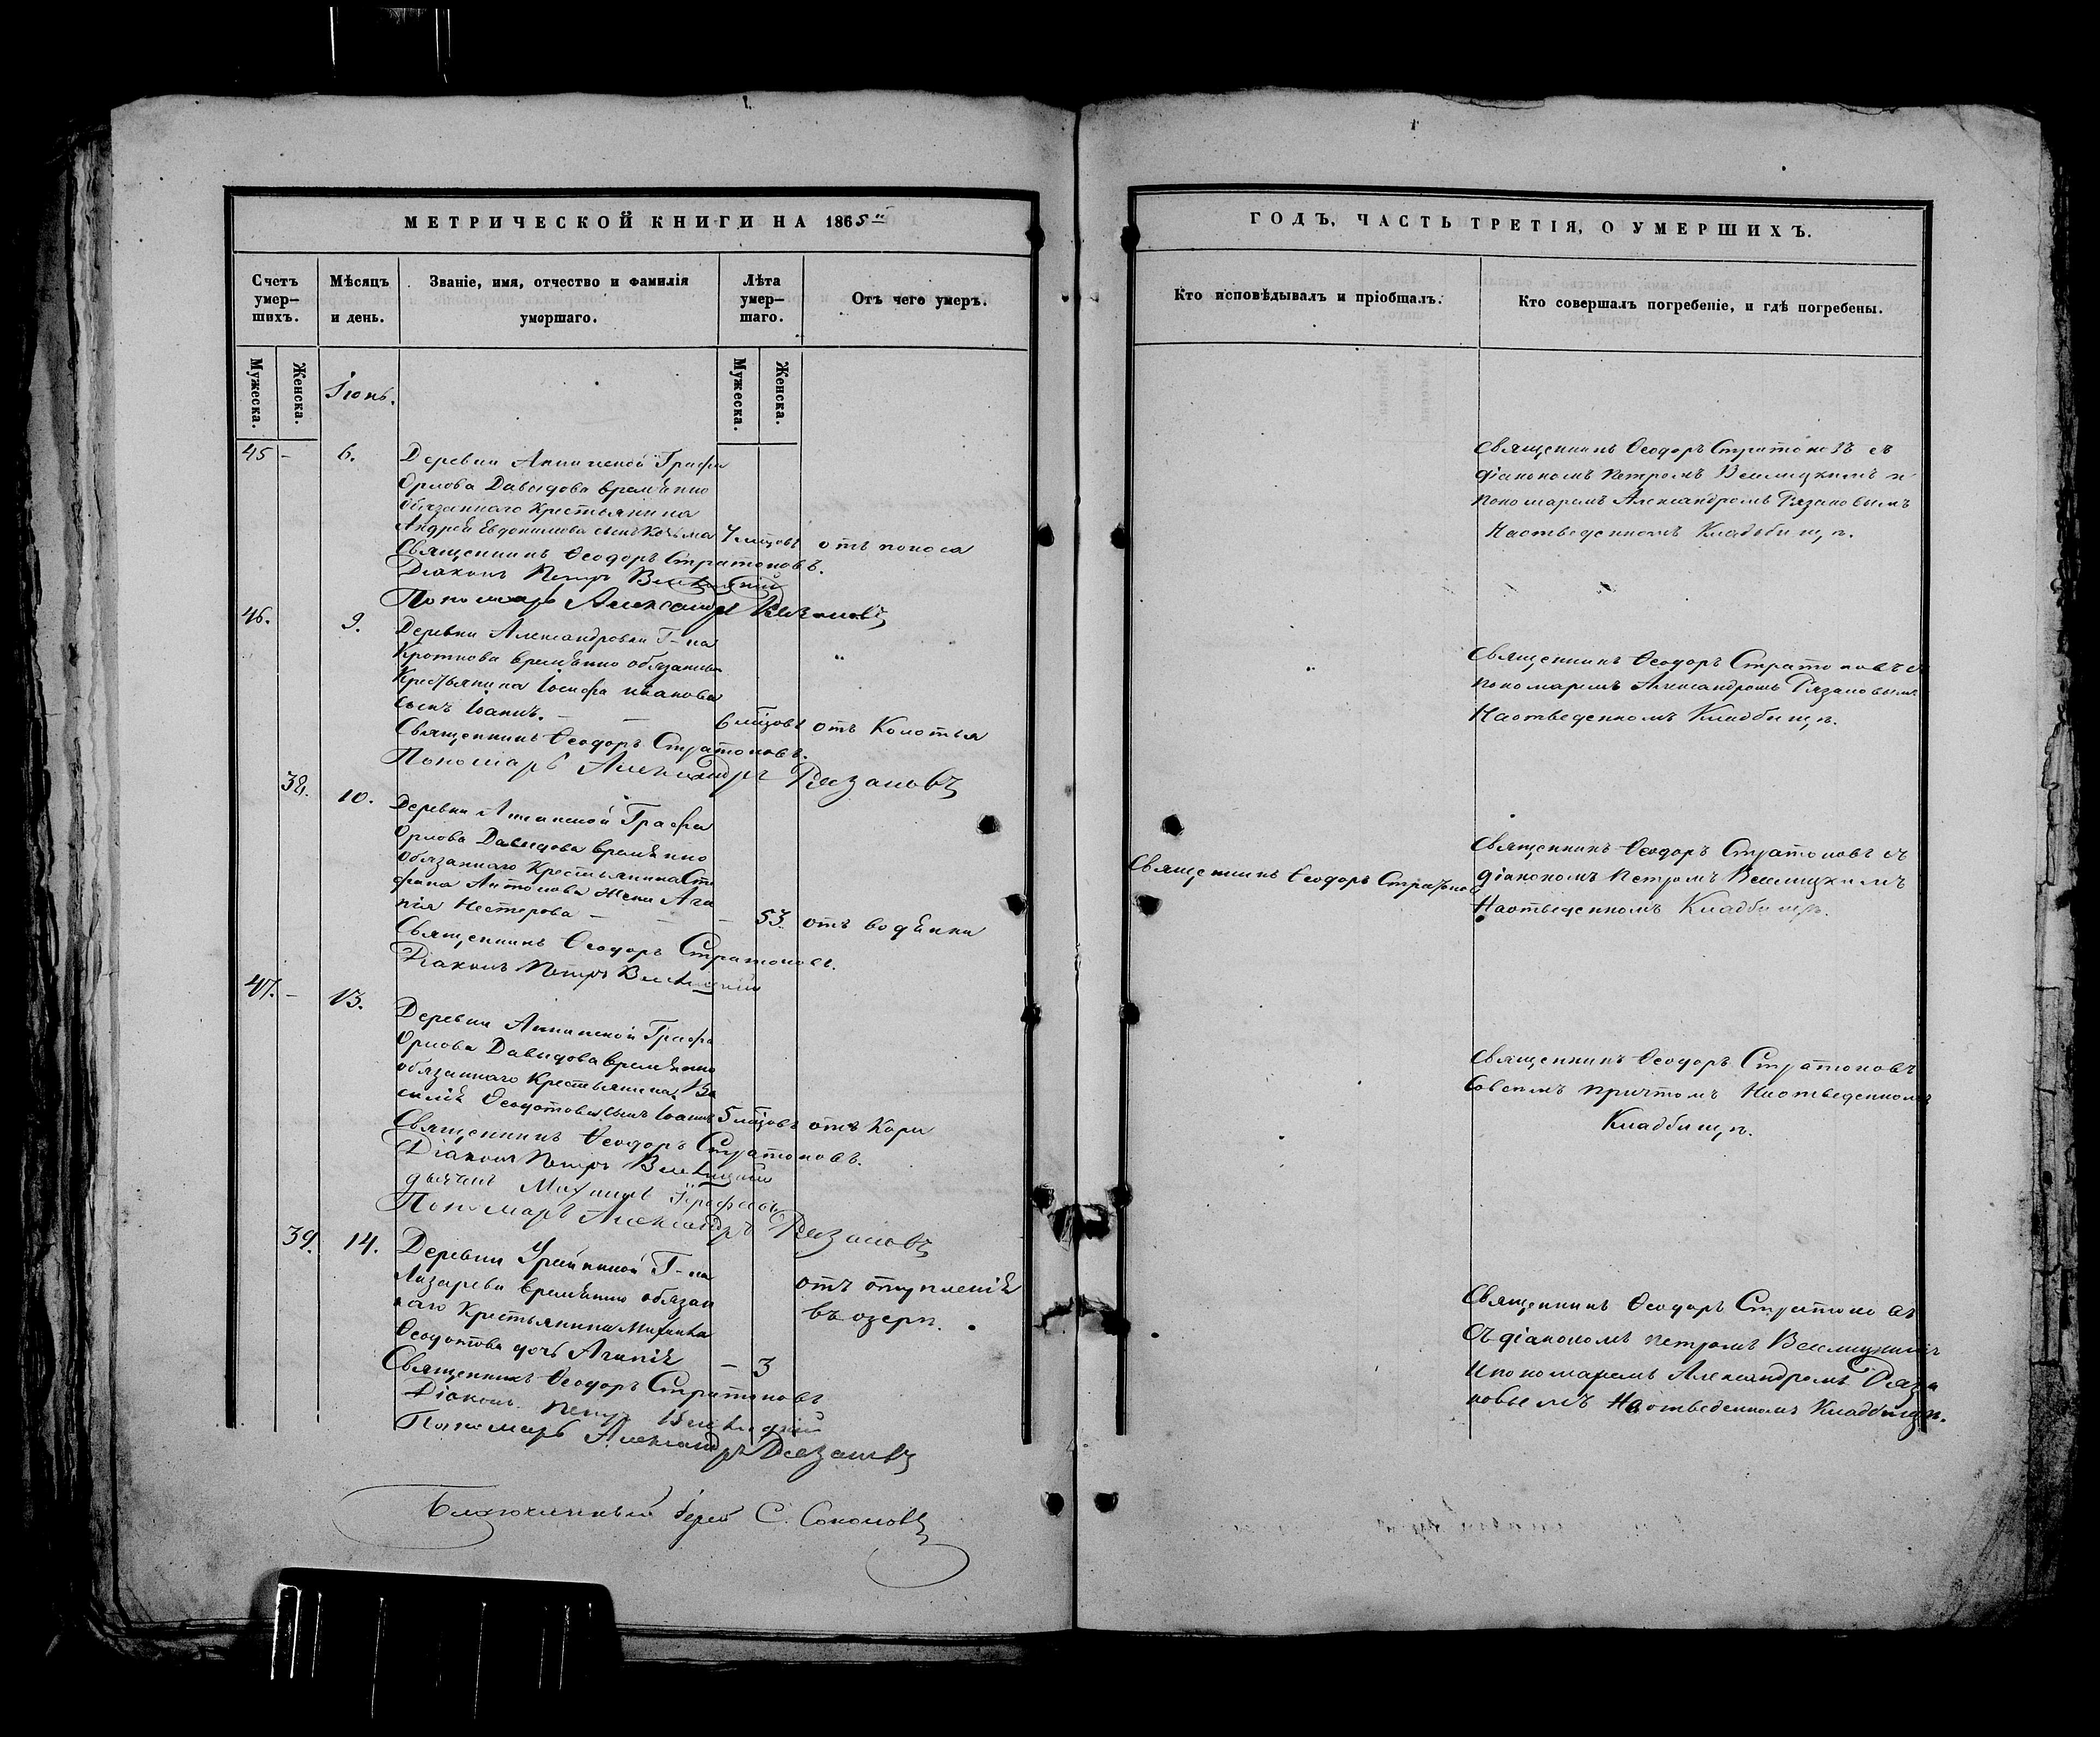 МЕТРИЧЕСКОЙ КНИГИ НА 1865й
Счетъ умер-шихъ.
Мѣсяцъ и день.
Званіе, имя, отчество и фамилія умершаго.
Лѣта умер-шаго.
Отъ чего умеръ.
Мужеска.
Женска.
Мужеска.
Женска.
Іюнь.
45 - 6.
Деревни Аннинской Графа
Орлова Давыдова временно
обязаннаго крестьянина
Андрея Евдокимова сынъ Козьма 7 мѣсцовъ отъ поноса
Священникъ Ѳеодоръ Стратоновъ.
Діаконъ Петръ
Пономарь Александръ Рязановъ
46. 9.
Деревни Александровки Г-на
Кроткова временно обязаннаго
Крестьянина Іосифа Иванова
сынъ Іоаннъ. 6 мѣсцовъ отъ Колотья
Священникъ Ѳеодоръ Стратоновъ.
Пономарь Александръ Рязановъ
38. 10.
Деревни Аннинской Графа
Орлова Давыдова временно
обязаннаго Крестьянина Сте
фана Антонова жена Ага
пія Нестерова - - 53. отъ водянки
Священникъ Ѳеодоръ Стратоновъ.
Діаконъ Петръ
47. - 13.
Деревни Аннинской Графа
Орлова Давыдова временно
обязаннаго Крестьянина Ва
силія Ѳеодотова сынъ Іоаннъ 5 мѣсцовъ отъ Кори
Священникъ Ѳеодоръ Стратоновъ.
Діаконъ Петръ
дьячекъ Михаилъ
Пономарь Александръ Рязановъ
39. 14.
Деревни Г-на
Лазарева временно обязан
наго Крестьянина Михаила
Ѳеодотова дочь Агапія - 3
отъ
въ озерѣ.
Священникъ Ѳеодоръ Стратоновъ
Діаконъ Петръ
Пономарь Александръ Рязановъ
Благочинный Іерей С. Соколовъ
ГОДЪ, ЧАСТЬ ТРЕТІЯ, О УМЕРШИХЪ.
Кто исповѣдывалъ и пріобщалъ.
Кто совершалъ погребеніе, и гдѣ погребены.
Священникъ Ѳеодоръ Стратоновъ съ
діакономъ Петромъ и
пономаремъ Александромъ Рязановымъ
На отведенномъ Кладбищѣ.
Священникъ Ѳеодоръ Стратоновъ съ
пономаремъ Александромъ Рязановымъ
На отведенномъ Кладбищѣ.
Священникъ Ѳеодоръ Стратонов
Священникъ Ѳеодоръ Стратоновъ съ
діакономъ Петромъ
На отведенномъ Кладбищѣ.
Священникъ Ѳеодоръ Стратоновъ
со всемъ причтомъ На отведенномъ
Кладбищѣ.
Священникъ Ѳеодоръ Стратоновъ
Съ діакономъ Петромъ
и пономаремъ Александромъ Ряза
новымъ На отведенномъ Кладбищѣ.